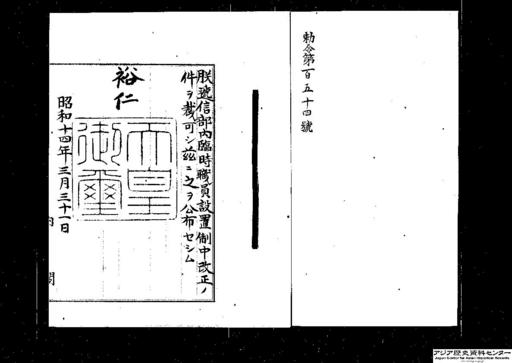 勅令第百五十四號
朕遞信部內臨時職員設置制中改正ノ
件ヲ裁可シ茲ニ之ヲ公布セシム
裕仁
天皇
御璽
昭和十四年三月三十一日
內閣
アジア歴史資料センター
Japan Center for Asian Historical Records